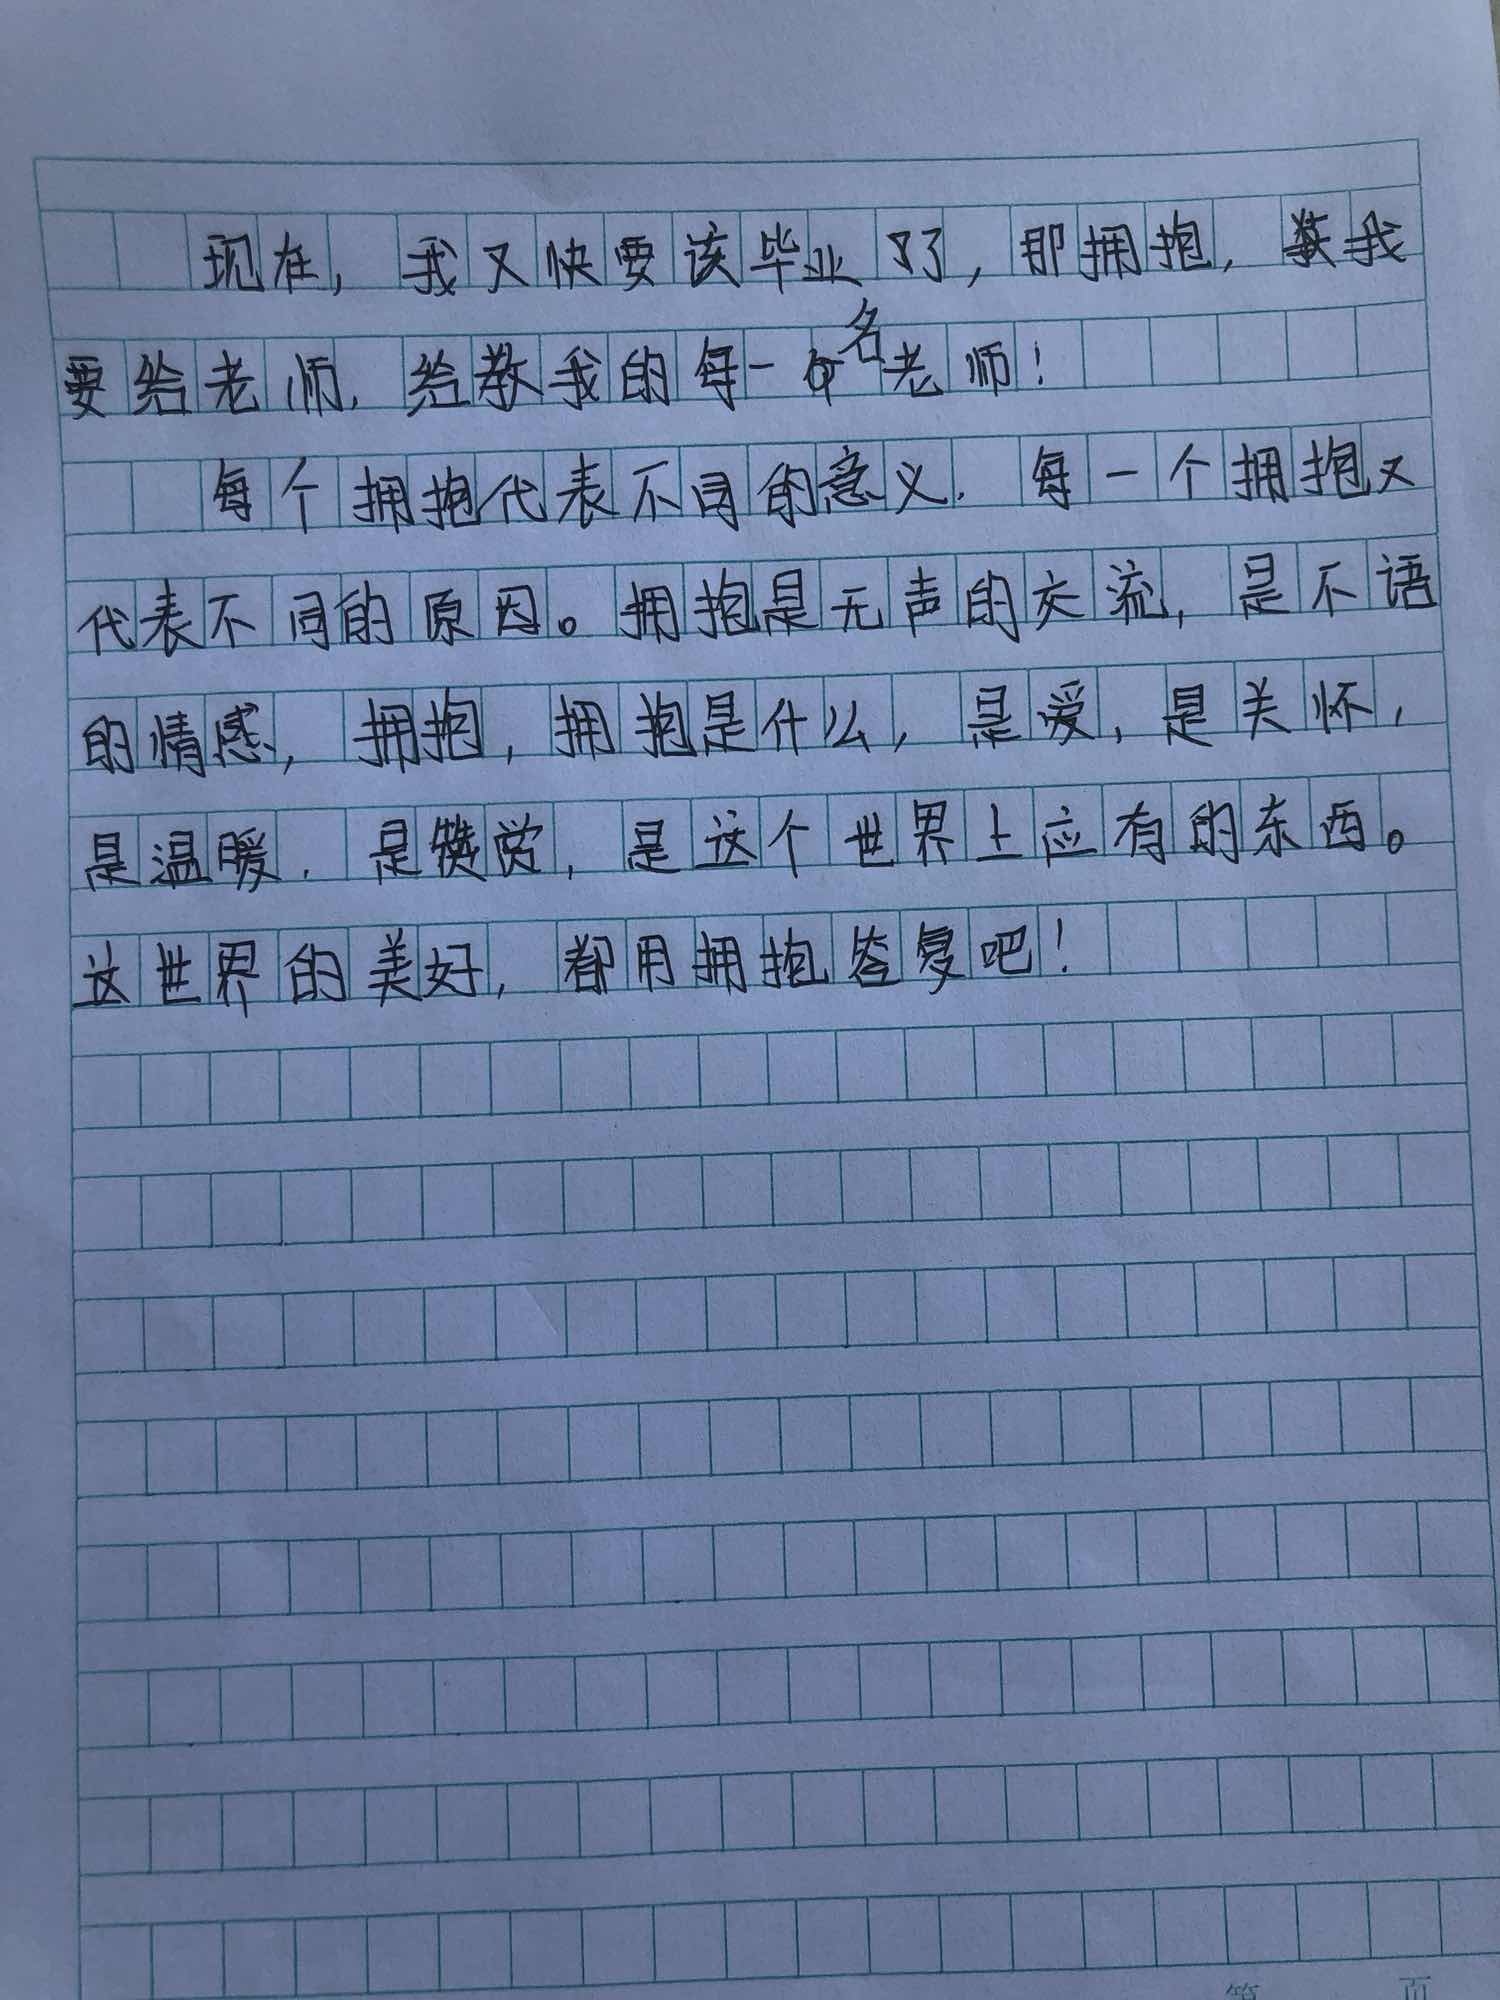 现在，我又快要该毕业了，那拥抱，我
要给老师，给教我的每一名老师！
每个拥抱代表不同的意义，每一个拥抱又
代表不同的原因。拥抱是无声的交流，是不语
的情感，拥抱，拥抱是什么，是爱，是关怀，
是温暖，是赞赏，是这个世界上应有的东西。
这世界的美好，都用拥抱答复吧！
第 页